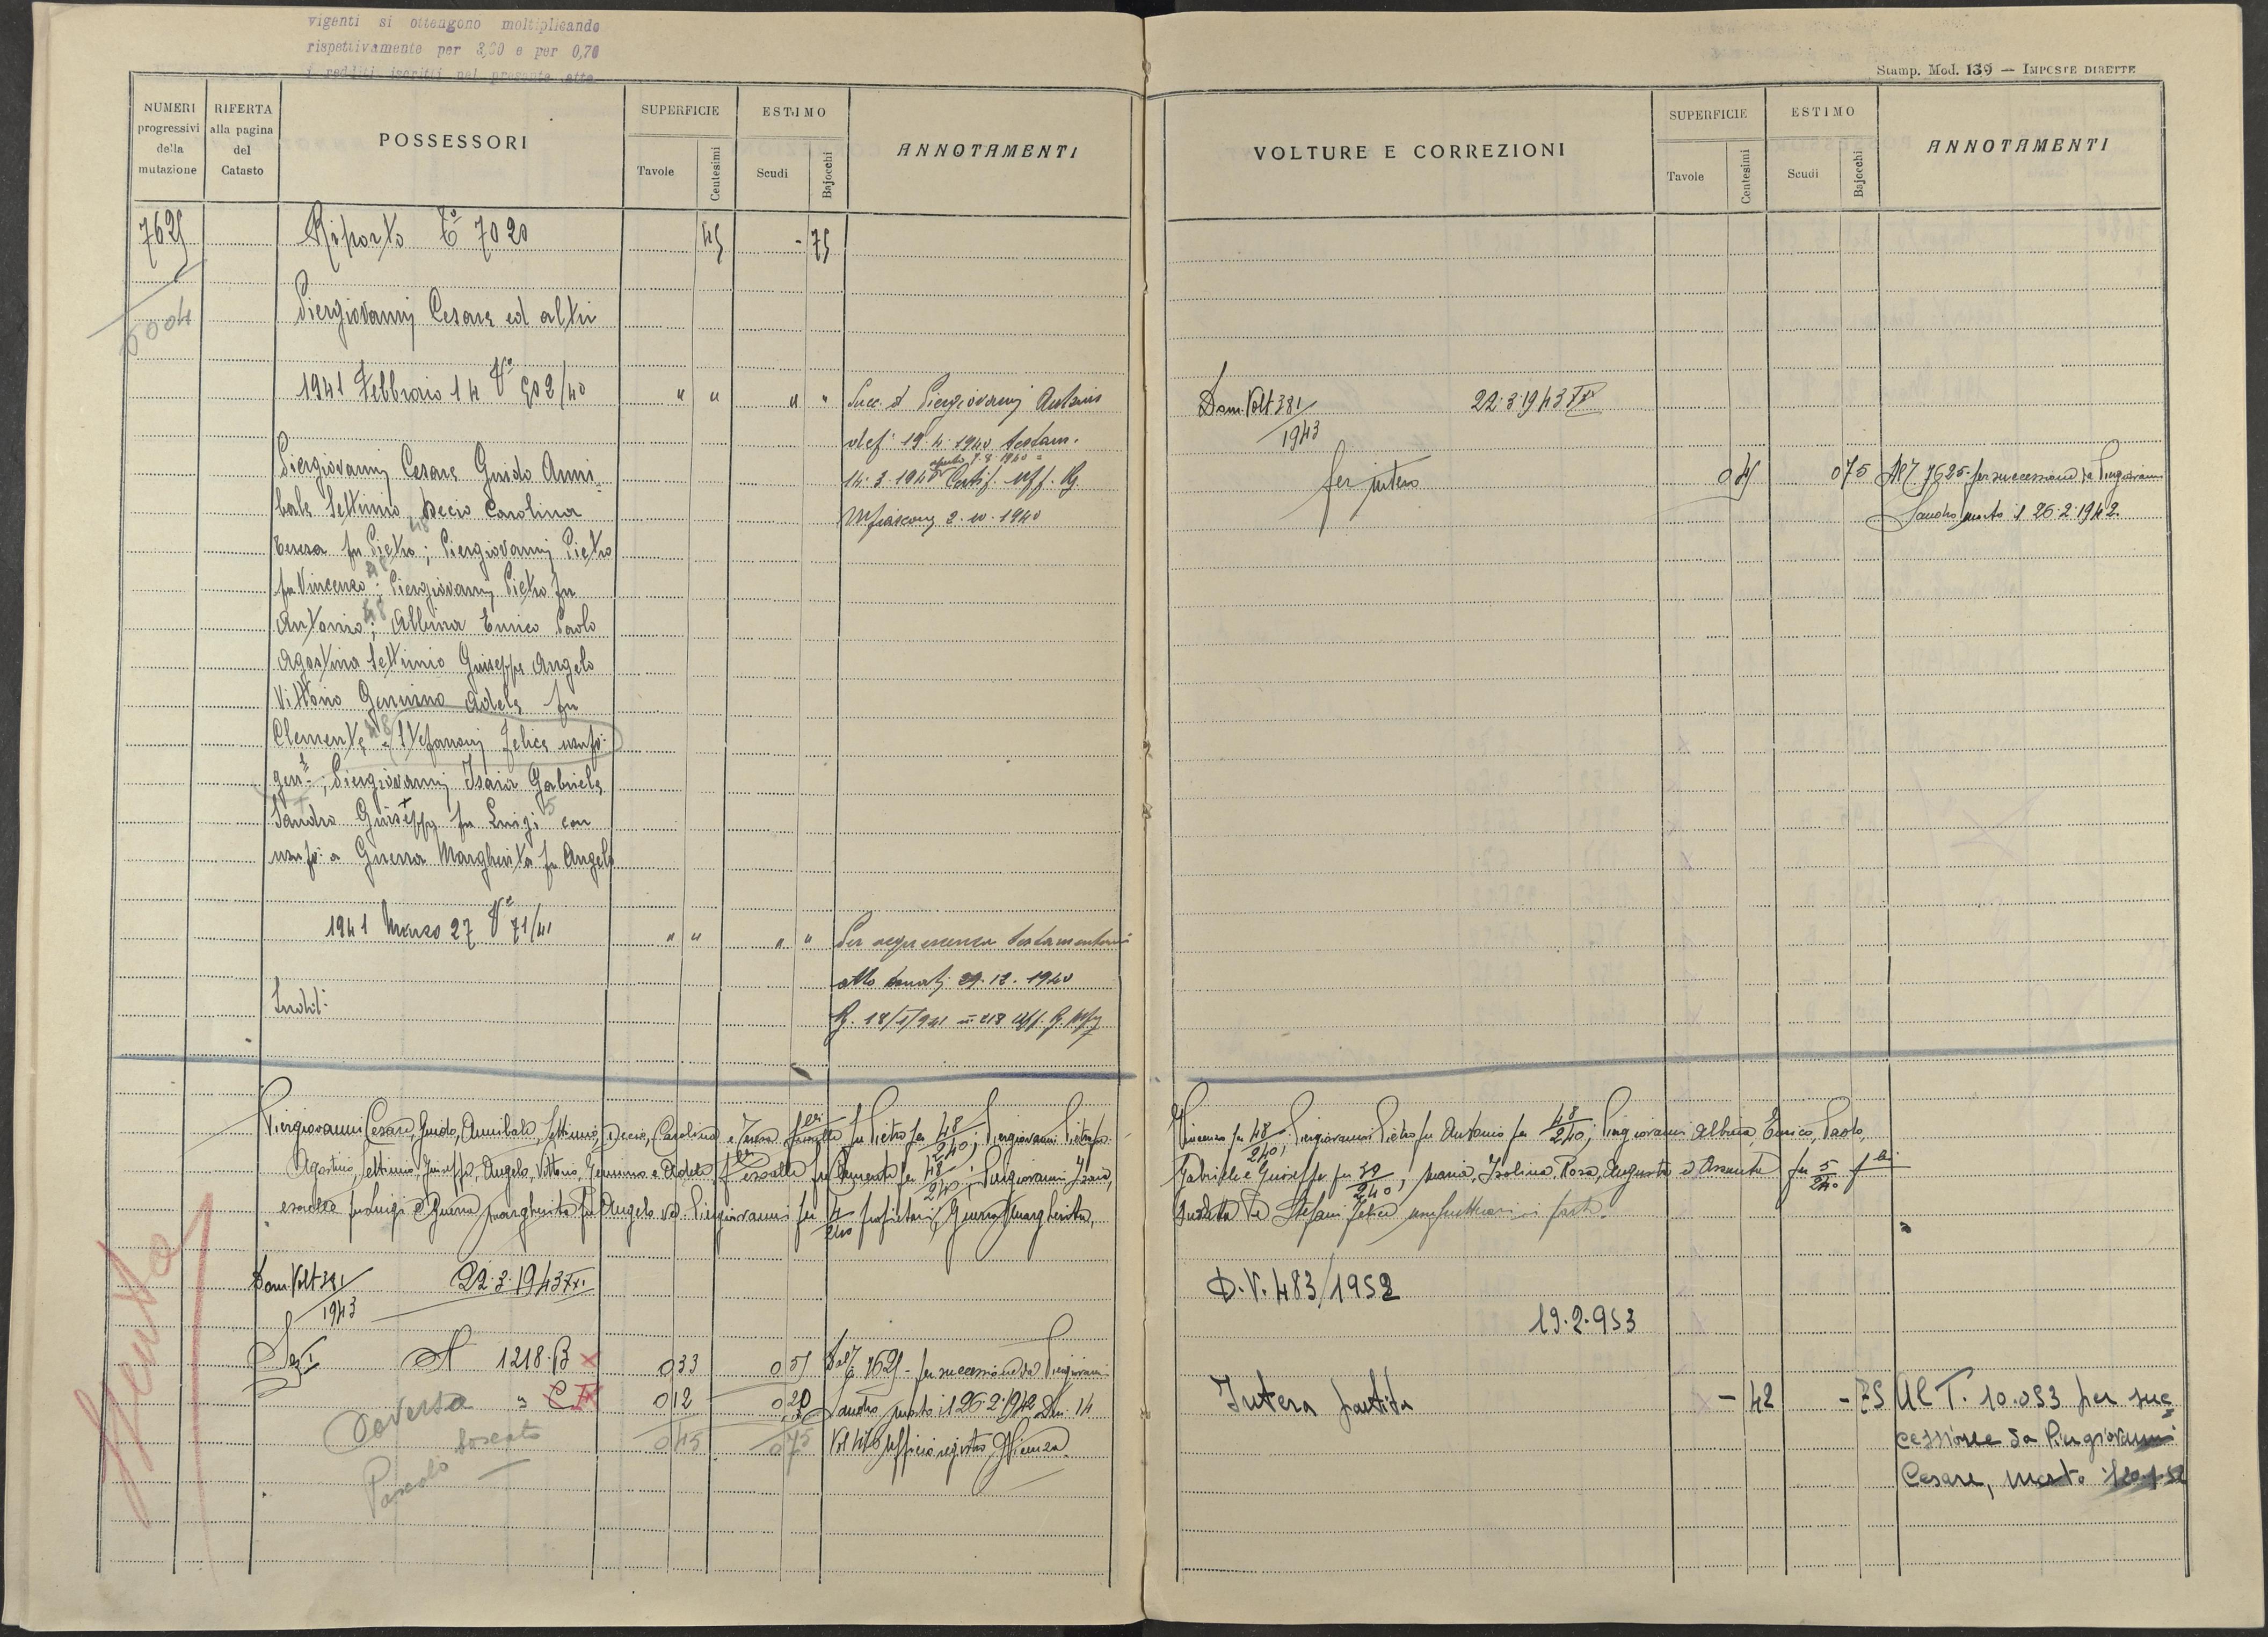 vigenti si ottengono moltiplicando
rispettivamente per 3,00 e per 0,70
i redditi iscritti nel presente atto
NUMERI progressivi della mutazione
RIFERTA alla pagina del Catasto
POSSESSORI
SUPERFICIE
Tavole
Centesimi
ESTIMO
Scudi
Bajocchi
ANNOTAMENTI
7625
Riporto To 7020
45
- 75
5004
Piergiovanni Cesare ed altri
1941 Febbraio 14 Vo 502/40
" " " "
Succ. d Piergiovanni Antonio
def: 19.4.1940 testam.
14.3.1940 Certif. Uff. Rg.
Mfiascone 2.10.1940
Piergiovanni Cesare Guido Anni-
bale Settimio Decio Carolina
Teresa fu Pietro; Piergiovanni Pietro
fu Vincenzo; Piergiovanni Pietro fu
Antonio; Albina Enrico Paolo
Agostino Settimio Giuseppe Angelo
Vittorio Gemino Adele fu
Clemente 48 Stefanonj Felice usufr:
gen; Piergiovanni Isaia Gabriele
Sandro Giuseppe fu Luigi 5 con
usufr: a Guerra Margherita fu Angelo
1941 Marzo 27 Vo 71/41
" " " "
Per acquiescenza testamentaria
atto 29.12.1940
Rg. 18/1/941 n. 218 Uff. R. Mfg
Inditi:
Piergiovanni Cesare, Guido, Annibale, Settimio, Decio, Carolina e Teresa flli fu Pietro per 48/240; Piergiovanni Pietro fu
Agostino, Settimio, Giuseppe, Angelo, Vittorio, Gemino e Adele flli e sorelle fu Clemente per 48/240; Piergiovanni Isaia,
e sorelle fu Luigi e Guerra Margherita fu Angelo ved. Piergiovanni per /240 proprietari; Guerra Margherita,
Dom. Volt 381/1943 22.3.1943 XXI
Sez I A 1218.B × 033 051
Dal T. 7625 - per successione da Piergiovanni
" C 012 020
Sandro morto il 26.2.1942 Den. 14
045 075
Vol 470 Ufficio registro
Coverta
boscato
Pascolo
Stamp. Mod. 139 — IMPOSTE DIRETTE
VOLTURE E CORREZIONI
SUPERFICIE
Tavole
Centesimi
ESTIMO
Scudi
Bajocchi
ANNOTAMENTI
Dom. Volt 381/1943 22.3.1943 XXI
per intero
045
075
Al T. 7625 per successione da Piergiovanni
Sandro morto il 26.2.1942.
Vincenzo per 48/240; Piergiovanni Pietro fu Antonio per 48/240; Piergiovanni Albina, Enrico, Paolo,
Gabriele e Giuseppe per 38/240; Maria, Isolina, Rosa, Augusta ed Assunta per 5/240 flli
Suddetta ed Stefani Felice usufruttuari in parte.
D.V. 483/1952
19.2.953
Intera partita
- 42
- 75
Al T. 10.053 per suc
cessione da Piergiovanni
Cesare, morto